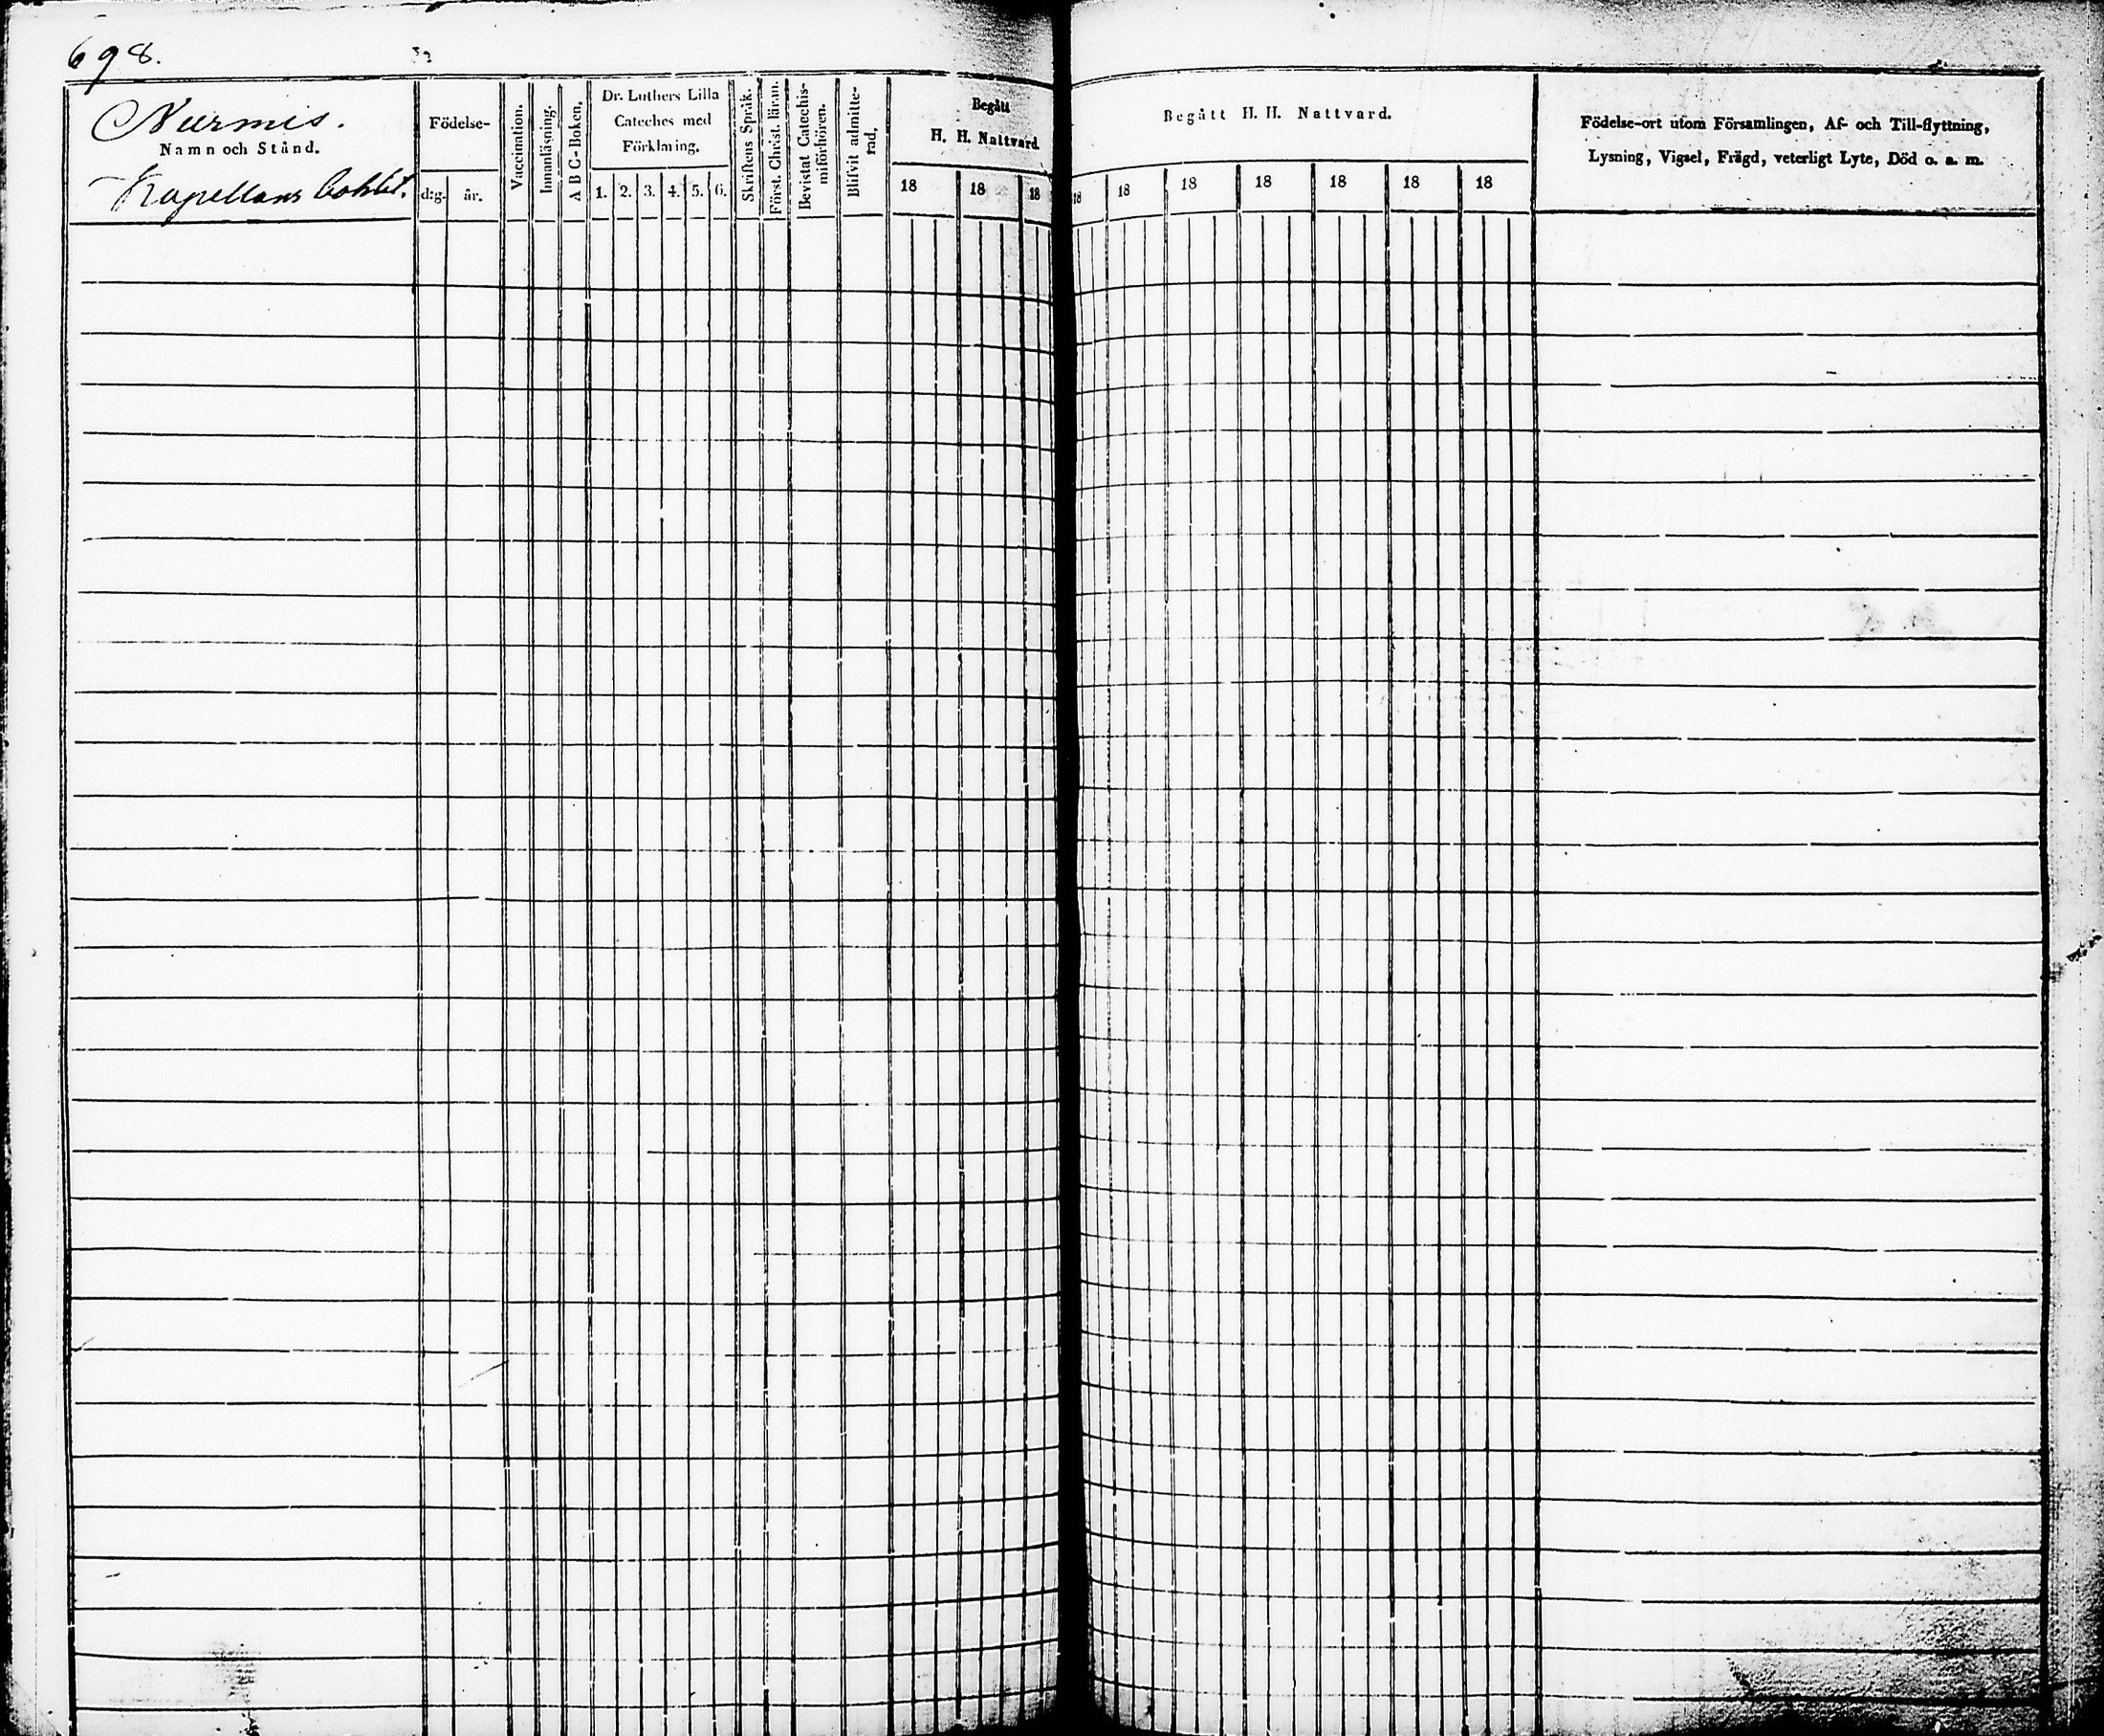 698.
Nurmis.
Namn och Stånd.
Kapellans Bohlet.
Födelse-
d:g. år.
Vaccination.
Innanläsning.
A B C-Boken.
Dr. Luthers Lilla
Cateches med
Förklaring.
1. 2. 3. 4. 5. 6.
Skriftens Språk.
Först. Christ. lärm.
Bevistat Catechis-
miförhören.
Blifvit admitte-
rad.
Begått
H. H. Nattvard.
18 18 18
Begått H. H. Nattvard.
18 18 18 18 18 18 18
Födelse-ort utom Församlingen, Af- och Till-flyttning,
Lysning, Vigsel, Frägd, veterligt Lyte, Död o. s. m.